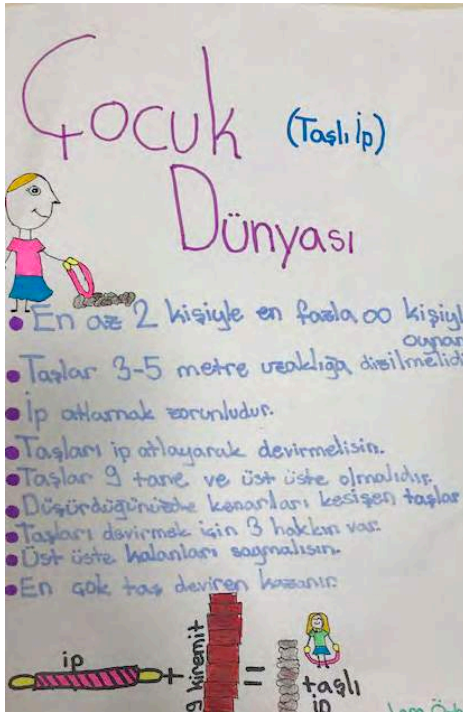 Çocuk (Taşlı İp)
Dünyası
En az 2 kişiyle en fazla ∞ kişiyl
oynan
Taşlar 3-5 metre uzaklığa dizilmelidi
İp atlamak zorunludur.
Taşları ip atlayarak devirmelisin.
Taşlar 9 tane ve üst üste olmalıdır.
Düşürdüğünüzde kenarları kesişen taşlar
Taşları devirmek için 3 hakkın var.
Üst üste kalanları saymalısın.
En çok taş deviren kazanır.
ip + 9 kiremit = taşlı
ip